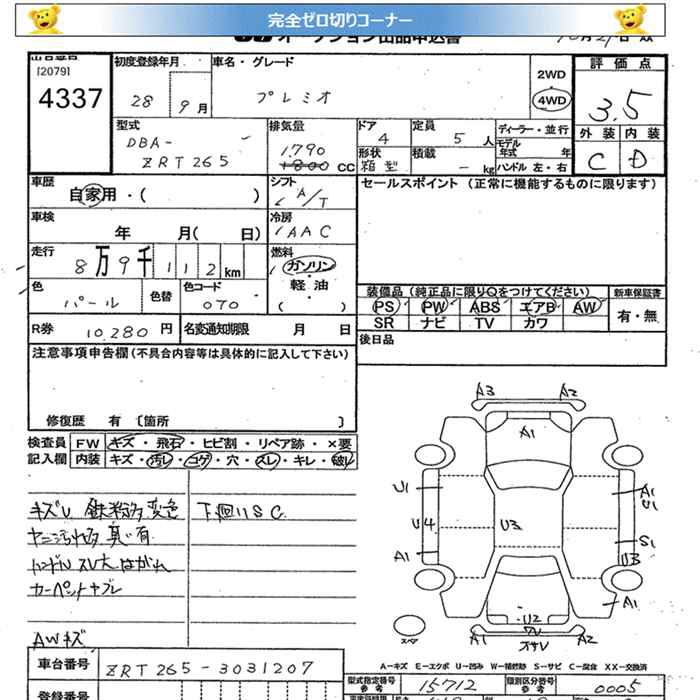 完全ゼロ切りコーナー
オークション出品申込書
出品番号 [2079]
4337
初度登録年月 28年 9月
車名・グレード プレミオ
2WD
4WD
評価点 3.5
外装 内装
C D
型式 DBA-
ZRT265
排気量 1,790
1800 CC
ドア 4
定員 5人
ディーラー・並行
形状 箱型
積載 - kg
モデル年式 年
ハンドル 左・右
車歴 自家用・( )
シフト A/T
セールスポイント (正常に機能するものに限ります)
車検 年 月( 日)
冷房 AAC
走行 8万9千112km
燃料 ガソリン
軽油
( )
色 パール
色替
色コード 070
装備品(純正品に限りQをつけてください)
PS PW ABS エアB AW
SR ナビ TV カワ
新車保証書
有・無
R券 10,280円
名変通知期限 月 日
後日品
注意事項申告欄(不具合内容等は具体的に記入して下さい)
修復歴 有 〔箇所 〕
検査員 FW キズ・飛石・ヒビ割・リペア跡・×要
記入欄 内装 キズ・汚レ・コゲ・穴・スレ・キレ・破レ
キズU 鉄粉 変色 下廻りSC
ヤニ汚 臭い有
ハンドルスレ大 はがれ
カーペットヤブレ
AWキズ
A3 A2
A1
U1 A1
U1
U4 U3
A1 S1
U3
A1
U2
スペア A1 A2
A-キズ E-エクボ U-凹み W-補修跡 S-サビ C-腐食 XX-交換済
車台番号 ZRT265-3031207
型式指定番号 参考 15712
類別区分番号 参考 0005
登録番号